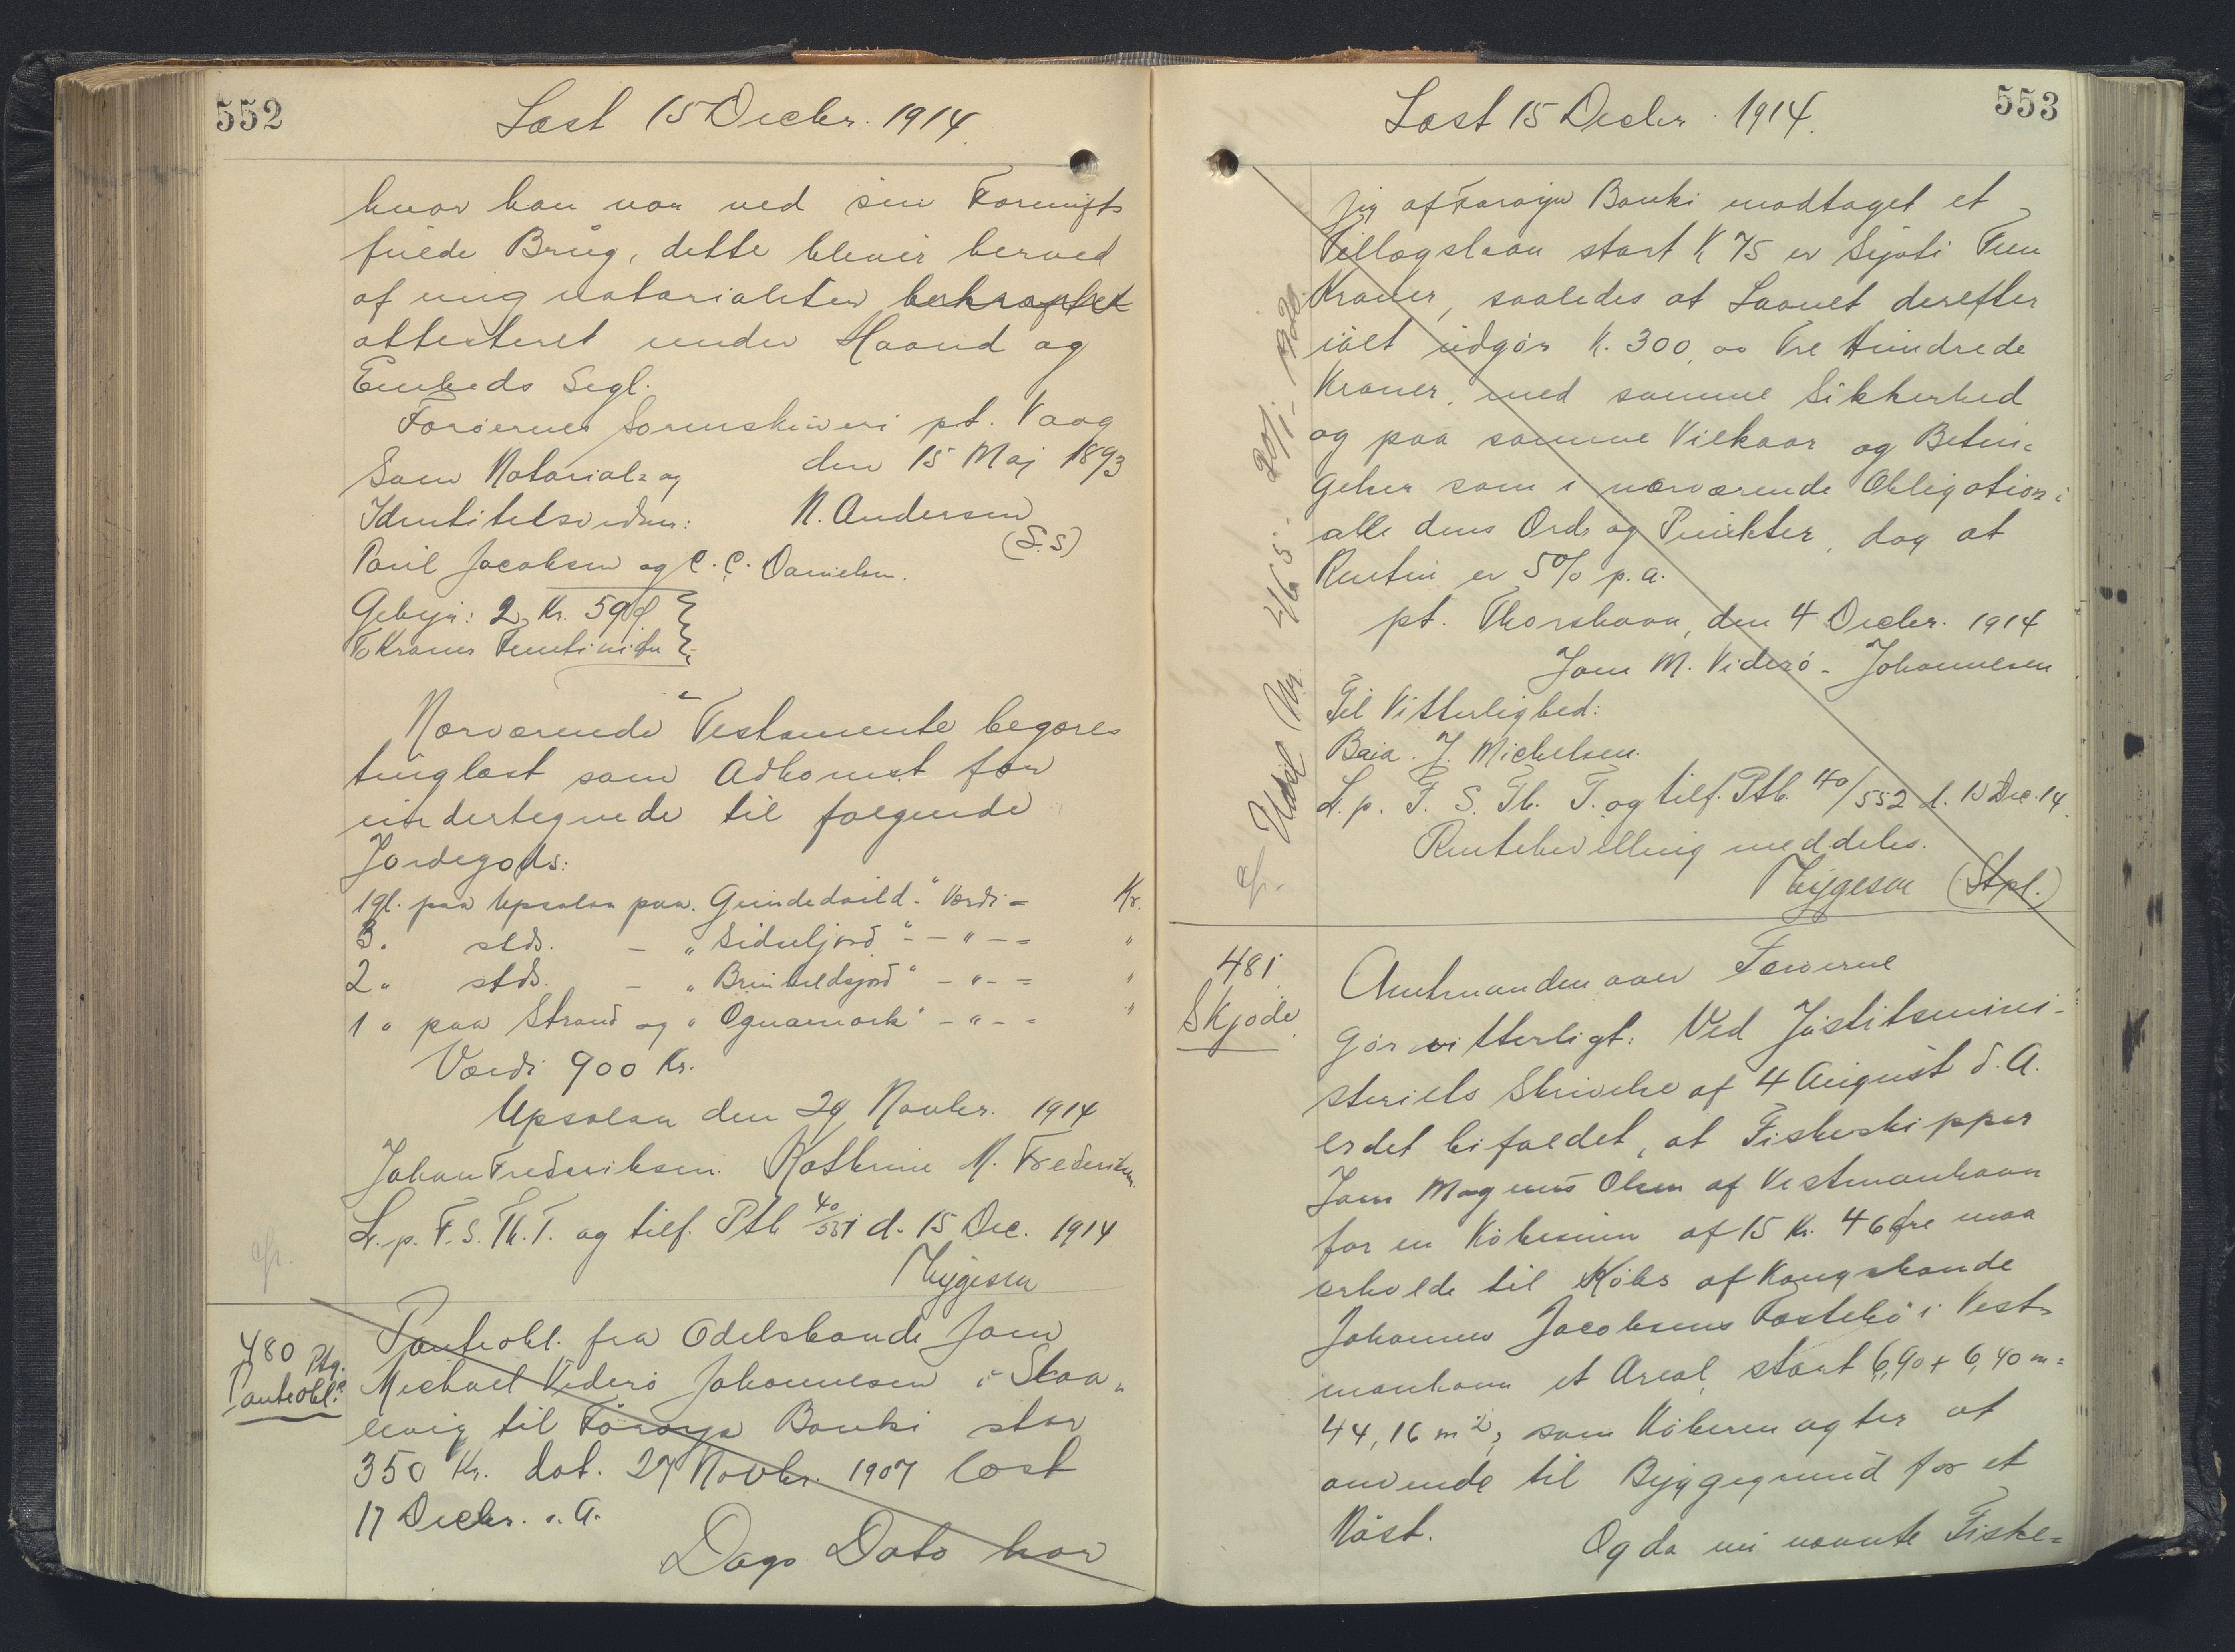 552
Læst 15 Decbr. 1914.
hvor han var ved sin Fornufts
fulde Brug, dette bliver herved
af mig notarialiter bekræftet
attesteret under Haand og
Embeds Segl.
Færøernes Sorenskriveri pt. Vaag
den 15 Maj 1893
Som Notarial= og
Identitetsvidner:
N. Andersen
(L.S)
Poul Jacobsen og C. C. Danielsen.
Gebyr: 2 Kr. 59 Ø
To Kroner Femtini Øre
Nærværende Testamente begæres
tinglæst som Adkomst for
undertegnede til følgende
Jordegods:
1 gl. paa Upsalan paa Værdi = Kr.
3 " stds. - " - " - = "
2 " stds. - " - " - = "
1 " paa Strand og " - " - = "
Værdi 900 Kr.
Upsalan den 29 Novbr. 1914
Johan Frederiksen. Kathrine M. Frederiksen.
L. p. F. S. Th. T. og tilf. Ptb 40/551 d. 15 Dec. 1914
Thygesen
cfr.
480 Ptg.
Panteobl.
Panteobl. fra Odelsbonde Joen
Michael Viderø Johannesen i Skaa=
levig til Føroya Banki stor
350 Kr. dat. 27 Novbr. 1907 læst
17 Decbr. s. A.
Dags Dato har
553
Læst 15 Decbr. 1914.
jeg af Føroya Banki modtaget et
Tillægslaan stort K 75 er Sytti Fem
Kroner, saaledes at Laanet derefter
ialt udgør K. 300,00 Tre Hundrede
Kroner, med samme Sikkerhed
og paa samme Vilkaar og Betin=
gelser som i nærværende Obligation i
alle dens Ord og Punkter, dog at
Renten er 5% p. a.
pt. Thorshavn, den 4 Decbr. 1914
Joen M. Viderø - Johannesen
Til Vitterlighed:
J. Michelsen.
L. p. F. S. Th. T. og tilf. Ptb. 40/552 d. 15 Dec. 14.
Rentebevilling meddeles.
Thygesen (Stpl.)
cfr. Udsl Nr. 465 - 20/1 - 1920.
481
Skjøde
Amtmanden over Færøerne
Gør vitterligt: Ved Justitsmini-
steriets Skrivelse af 4 August d. A.
er det bifaldet, at Fiskeskipper
Joen Magnus Olsen af Vestmanhavn
for en Købesum af 15 Kr. 46 Øre maa
erholde til Købs af Kongsbonde
Johannes Jacobsens Fæstebø i Vest=
manhavn et Areal, stort 6,90 + 6,40 m =
44,16 m², som Køberen agter at
anvende til Byggegrund for et
Nøst. Og da nu nævnte Fiske=